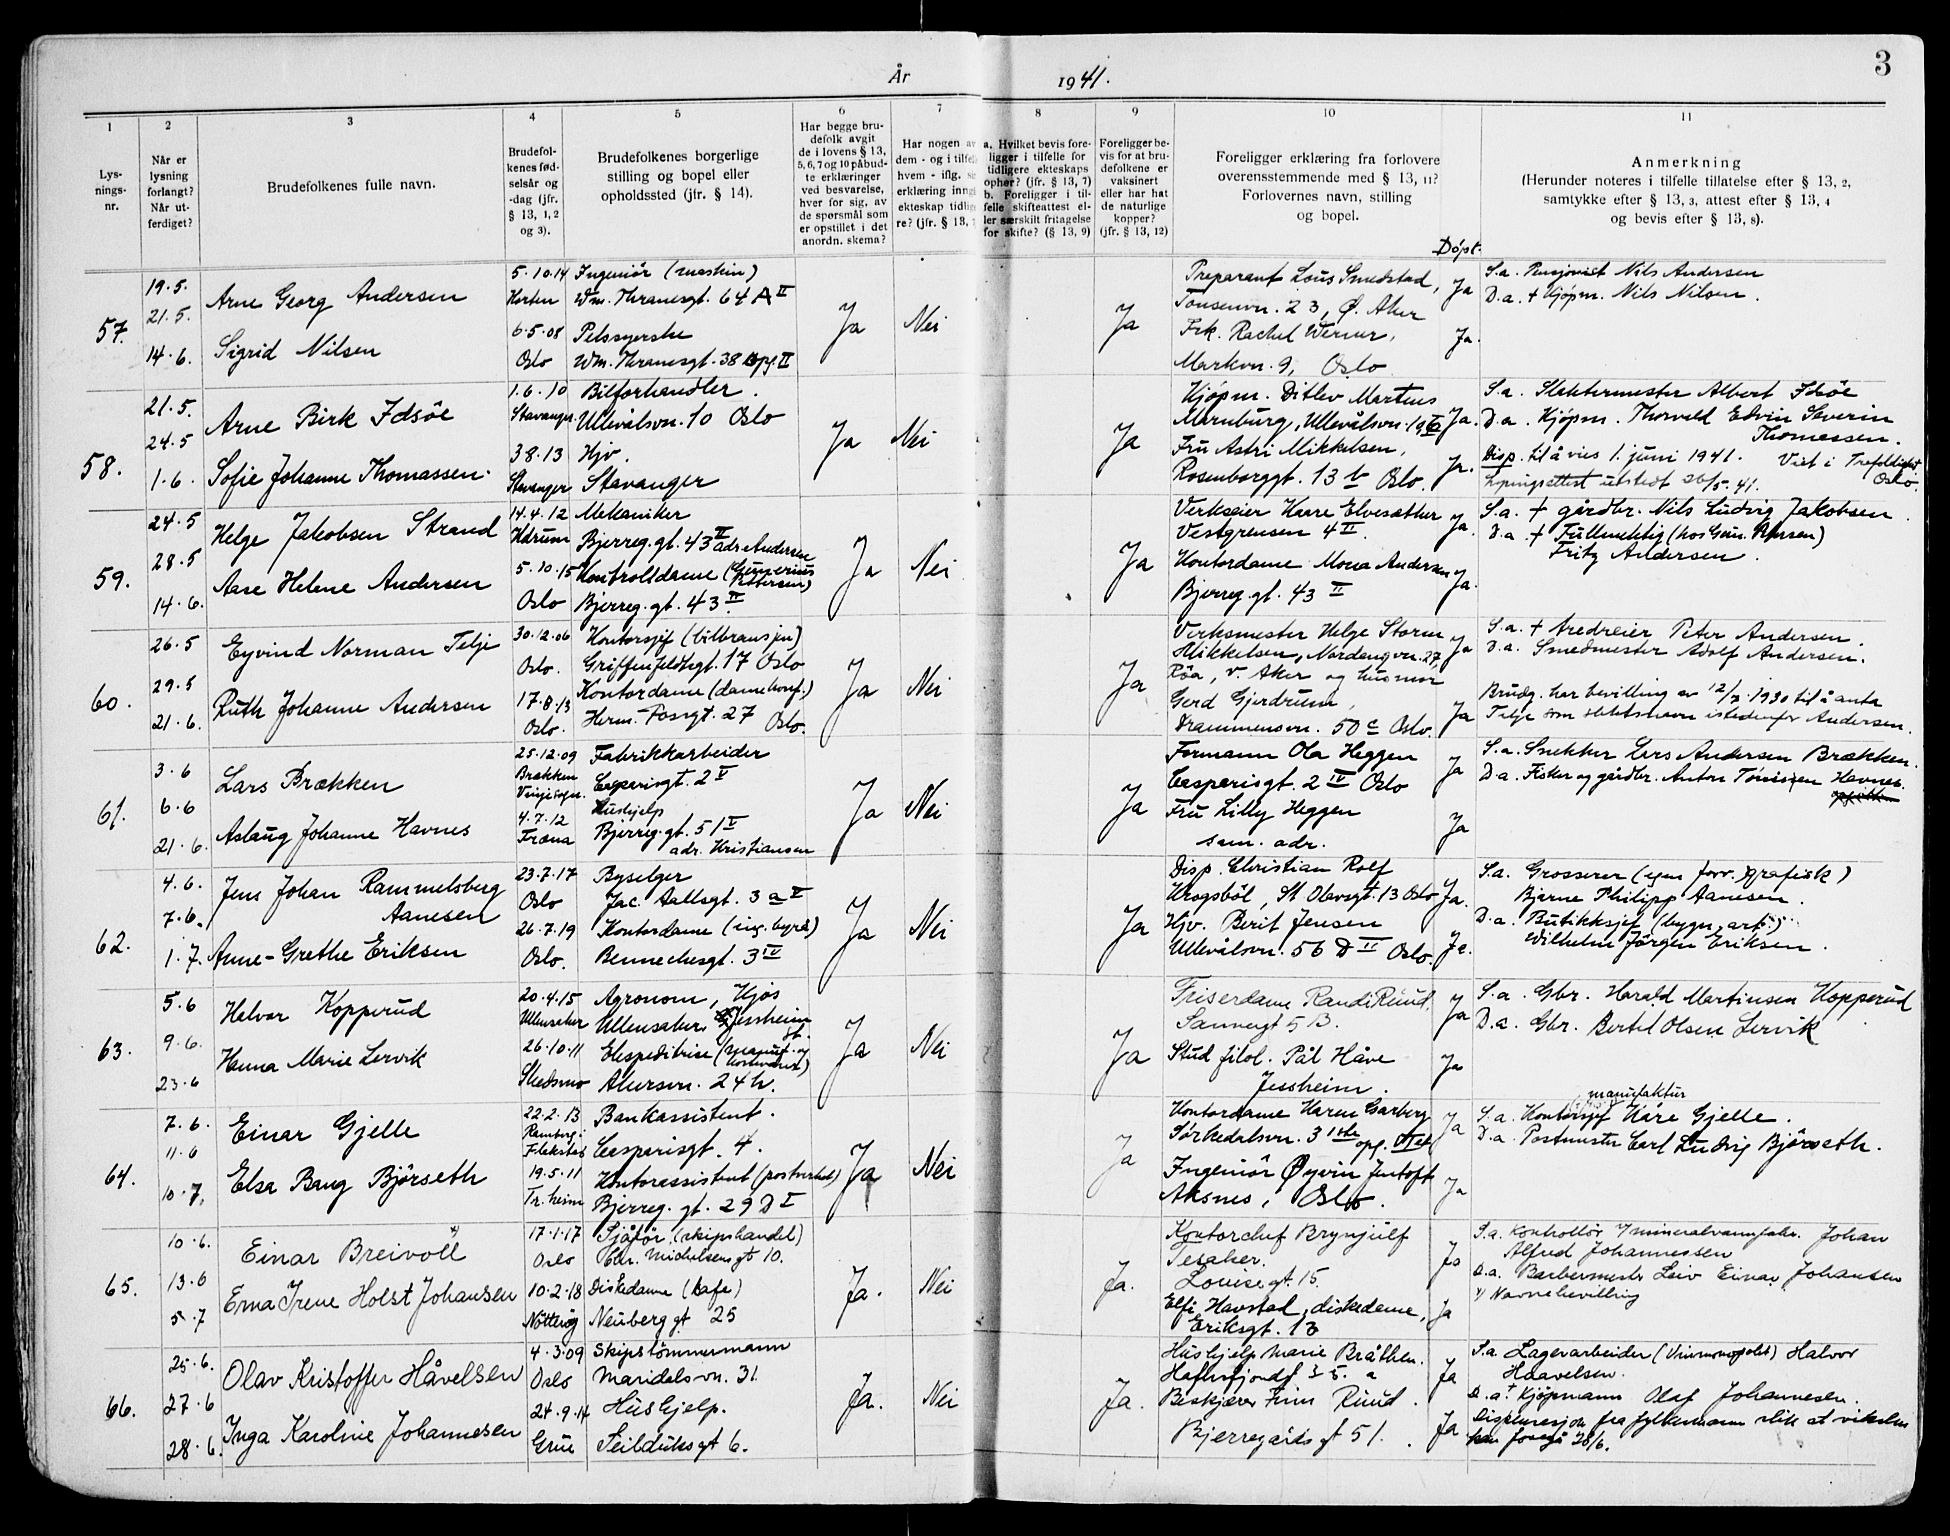 År 1941.
3
1
Lysningsnr.
2
Når er lysning forlangt? Når utferdiget?
3
Brudefolkenes fulle navn.
4
Brudefolkenes fødselsår og -dag (jfr. § 13, 1, 2 og 3).
5
Brudefolkenes borgerlige stilling og bopel eller opholdssted (jfr. § 14).
6
Har begge brudefolk avgit de i lovens § 13, 5, 6, 7 og 10 påbudte erklæringer ved besvarelse, hver for sig, av de spørsmål som er opstillet i det anordn. skema?
7
Har nogen av dem - og i tilfelle hvem - iflg.
erklæring inng
ekteskap tidlig
re? (jfr. § 13,
8
a. Hvilket bevis foreligger i tilfelle for tidligere ekteskaps opher? (jfr. § 13, 7)
b. Foreligger i tilfelle skifteattest eller særskilt fritagelse for skifte? (§ 13, 9)
9
Foreligger bevis for at brudefolkene er vaksinert eller har hat de naturlige kopper? (jfr. § 13, 12)
10
Foreligger erklæring fra forlovere overensstemmende med § 13, 11? Forlovernes navn, stilling og bopel.
Döpt.
11
Anmerkning
(Herunder noteres i tilfelle tillatelse efter § 13, 2, samtykke efter § 13, 3, attest efter § 13, 4 og bevis efter § 13, 8).
57.
19.5.
21.5.
14.6.
Arne Georg Andersen
Sigrid Nilsen
5.10.14
Horten
6.5.08
Oslo
Ingeniör (maskin)
Wm. Thranesgt. 64 A II
Pelssyerske
Wm. Thranesgt. 38 opg. II
Ja
Nei
Ja
Preparant Louis Smedstad,
Tonsenvn. 23, Ø. Aker
Frk. Rachel Werner,
Markvn. 9, Oslo
Ja
Ja.
S.a. Pensjonist Nils Andersen
D.a. + Kjöpm. Nils Nilsen.
58.
21.5.
24.5
1.6.
Arne Birk Idsöe
Sofie Johanne Thomassen.
1.6.10
Stavanger
3.8.13
Stavanger
Bilforhandler.
Ullevålsvn. 10 Oslo
Hjv.
Stavanger
Ja
Nei
Ja
Kjöpm. Ditlev Martens
Marnburg, Ullevålsvn. 19
Fru Astri Mikkelsen,
Rosenborggt. 13 b Oslo.
Ja.
Ja.
S.a. Slaktermester Albert Idsöe
D.a. Kjöpm. Thorvald Edvin Severin
Thomassen.
Disp. til å vies 1. juni 1941. Viet i Trefoldigh.
Oslo.
Lysningsattest utstedt 26/5.41.
59.
24.5
28.5
14.6.
Helge Jakobsen Strand
Aase Helene Andersen
14.4.12
Hdrum
5.10.15
Oslo
Mekaniker
Bjerreg.gt. 43 II adr. Andersen
Kontrolldame (Gunerius Pettersen)
Bjerreg.gt. 43 II
Ja
Nei
Ja
Verkseier Kaare Elvesæther
Vestgrensen 4 II.
Kontordame Mona Andersen
Bjerreg.gt. 43 II
Ja.
Ja.
S.a. + gårdbr. Nils Ludvig Jakobsen.
D.a. + Fullmektig (hos
Fritz Andersen.
60.
26.5
29.5
21.6.
Eyvind Norman Telje
Ruth Johanne Andersen
30.12.06
Oslo.
17.8.13
Oslo.
Kontorsjef (bilbransjen)
Griffenfeldtsgt. 17 Oslo
Kontordame (damekonf.)
Herm. Fossgt. 27 Oslo.
Ja
Nei
Ja
Verksmester Helge Storm
Mikkelsen, Nordengvn. 27,
Röa, V. Aker og husmor
Gerd Gjerdrum,
Drammensvn. 50 c Oslo.
Ja
Ja
S.a. + Aredreier Peter Andersen.
D.a. Smedmester Adolf Andersen.
Brudg. har bevilling av 12/3.1930 til å anta
Telje som slektsnavn istedenfor Andersen.
61.
3.6
6.6
21.6.
Lars Brækken
Aslaug Johanne Havnes
25.12.09
Brækken
Vinjesogn.
4.7.12
Træna
Fabrikkarbeider
Casparisgt. 2 V
Hushjelp
Bjerreg.gt. 51 V
adr. Kristiansen
Ja
Nei
Ja
Formann Ola Heggen
Casparisgt. 2 IV Oslo
Fru Lilly Heggen
sam. adr.
Ja
Ja
S.a. Snekker Lars Andersen Brækken.
D.a. Fisker og gårdbr. Anton Tönisen Havnes.
62.
4.6.
7.6.
1.7.
Jens Johan Rammelsberg
Aanesen
Anne-Grethe Eriksen
23.7.17
Oslo
26.7.19
Oslo.
Byselger
Jac. Aallsgt. 3 a V
Kontordame (ing. byrå)
Bennechesgt. 3 IV
Ja
Nei
Ja
Disp. Christian Rolf
Krogsböl, St Olavsgt. 13 Oslo
Hjv. Berit Jensen
Ullevålsvn. 56 D II Oslo.
Ja.
Ja.
S.a. Grosserer (egen forr. grafisk)
Bjarne Philipp Aanesen.
D.a. Butikksjef (bygn. art.)
Wilhelm Jörgen Eriksen.
63.
5.6
9.6.
23.6
Halvor Kopperud
Hanna Marie Lervik
20.4.15
Ullensaker
26.10.11
Skedsmo
Agronom, Kjös
Ullensaker, Jessheim st.
Ekspeditrise (manuf. og
Akersvn. 24 h.
Ja
Nei
Ja
Friserdame Randi Ruud,
Sannergt 5 B.
Stud filol. Pål Håve
Jessheim.
Ja
Ja
S.a. Gbr. Harald Martinsen Kopperud
D.a. Gbr. Bertel Olsen Lervik
64.
7.6.
11.6
10.7.
Einar Gjelle
Elsa Bang Björseth
22.2.13
Ramberg i
Flakstad
19.5.11
Tr.heim
Bankassistent.
Casparisgt. 4.
Kontorassistent (postverket)
Bjerreg.gt. 29 D I
Ja
Nei
Ja
Kontordame Karen Garberg
Sørkedalsvn. 3
Ingeniör Øyvin Jentoft
Aksnes, Oslo.
Ja
Ja
manufaktur
S.a. Kontorsjef Kåre Gjelle.
D.a. Postmester Carl Ludvig Björseth.
65.
10.6.
13.6
5.7
Einar Breivoll x)
Erna Irene Holst Johansen
17.1.17
Oslo
10.2.18
Nötteröy
Sjåför (skipshandel)
Chr. Michelsens gt 10.
Diskedame (kafe)
Neuberg gt 25
Ja.
Nei
Ja.
Kontorchef Brynjulf
Tesaker.
Louise gt. 15.
Elfi Havstad, diskedame,
Eriksgt. 13
Ja
Ja
S.a. Kontrollör v/mineralvannfabr. Johan
Alfred Johannessen
D.a. Barbermester Leiv Einar Johansen
x) Navnebevilling
66.
25.6.
27.6
28.6.
Olav Kristoffer Håvelsen
Inga Karoline Johannesen
4.3.09
Oslo
24.9.14
Grue
Skipstömmermann
Maridalsvn. 31.
Hushjelp.
Seilduksgt 6.
Ja.
Nei
Ja.
Hushjelp Marie Bråthen.
Hafrsfjordgt 5. a
Beskjærer Finn Ruud.
Bjerregårdsgt 51.
Ja
Ja
S.a. Lagerarbeider (Vinmonopolet) Halvor
Haavelsen.
D.a. + Kjöpmann Olaf Johannesen.
Dispensasjon fra fylkesmann slik at vielsen
kan foregå 28/6.